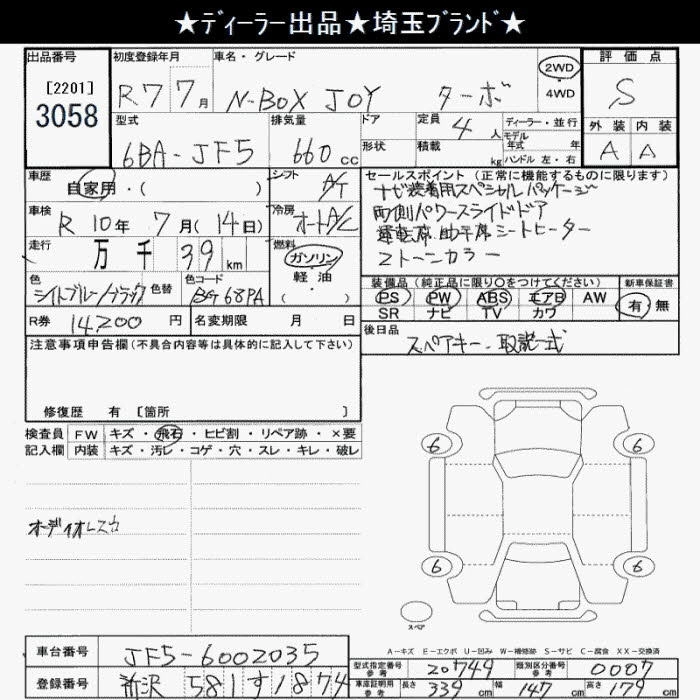 ★ディーラー出品★埼玉ブランド★
出品番号
[2201]
3058
初度登録年月
R7 7月
車名・グレード
N-BOX JOY ターボ
2WD
・
4WD
評価点
S
外装 内装
A A
型式
6BA-JF5
排気量
660 cc
ドア
形状
定員 4 人
積載 kg
ディーラー・並行
モデル
年式 年
ハンドル 左・右
車歴
自家用・( )
シフト
A/T
車検
R 10年 7月(14日)
冷房
オートA/C
走行
万 千 39 km
燃料
ガソリン
軽・油
( ・ )
色
色替
色コード
BG68PA
R券 14200 円
名変期限 月 日
セールスポイント (正常に機能するものに限ります)
ナビ装着用スペシャルパッケージ
両側パワースライドドア
運転席・助手席シートヒーター
2トーンカラー
装備品 (純正品に限り○をつけてください)
PS PW ABS エアB AW
SR ナビ TV カワ
新車保証書
有・無
後日品
スペアキー・取説一式
注意事項申告欄(不具合内容等は具体的に記入して下さい)
修復歴 有 [箇所 ]
検査員
記入欄
FW キズ・飛石・ヒビ割・リペア跡・×要
内装 キズ・汚レ・コゲ・穴・スレ・キレ・破レ
オーディオレスカ
6 6
6 6
スペア
A-キズ E-エクボ U-凹み W-補修跡 S-サビ C-腐食 XX-交換済
車台番号 JF5-6002035
登録番号 所沢 581 す 1874
型式指定番号
参考
20749
類別区分番号
参考
0007
車庫証明用
参考
長さ 339 cm 幅 147 cm 高さ 179 cm